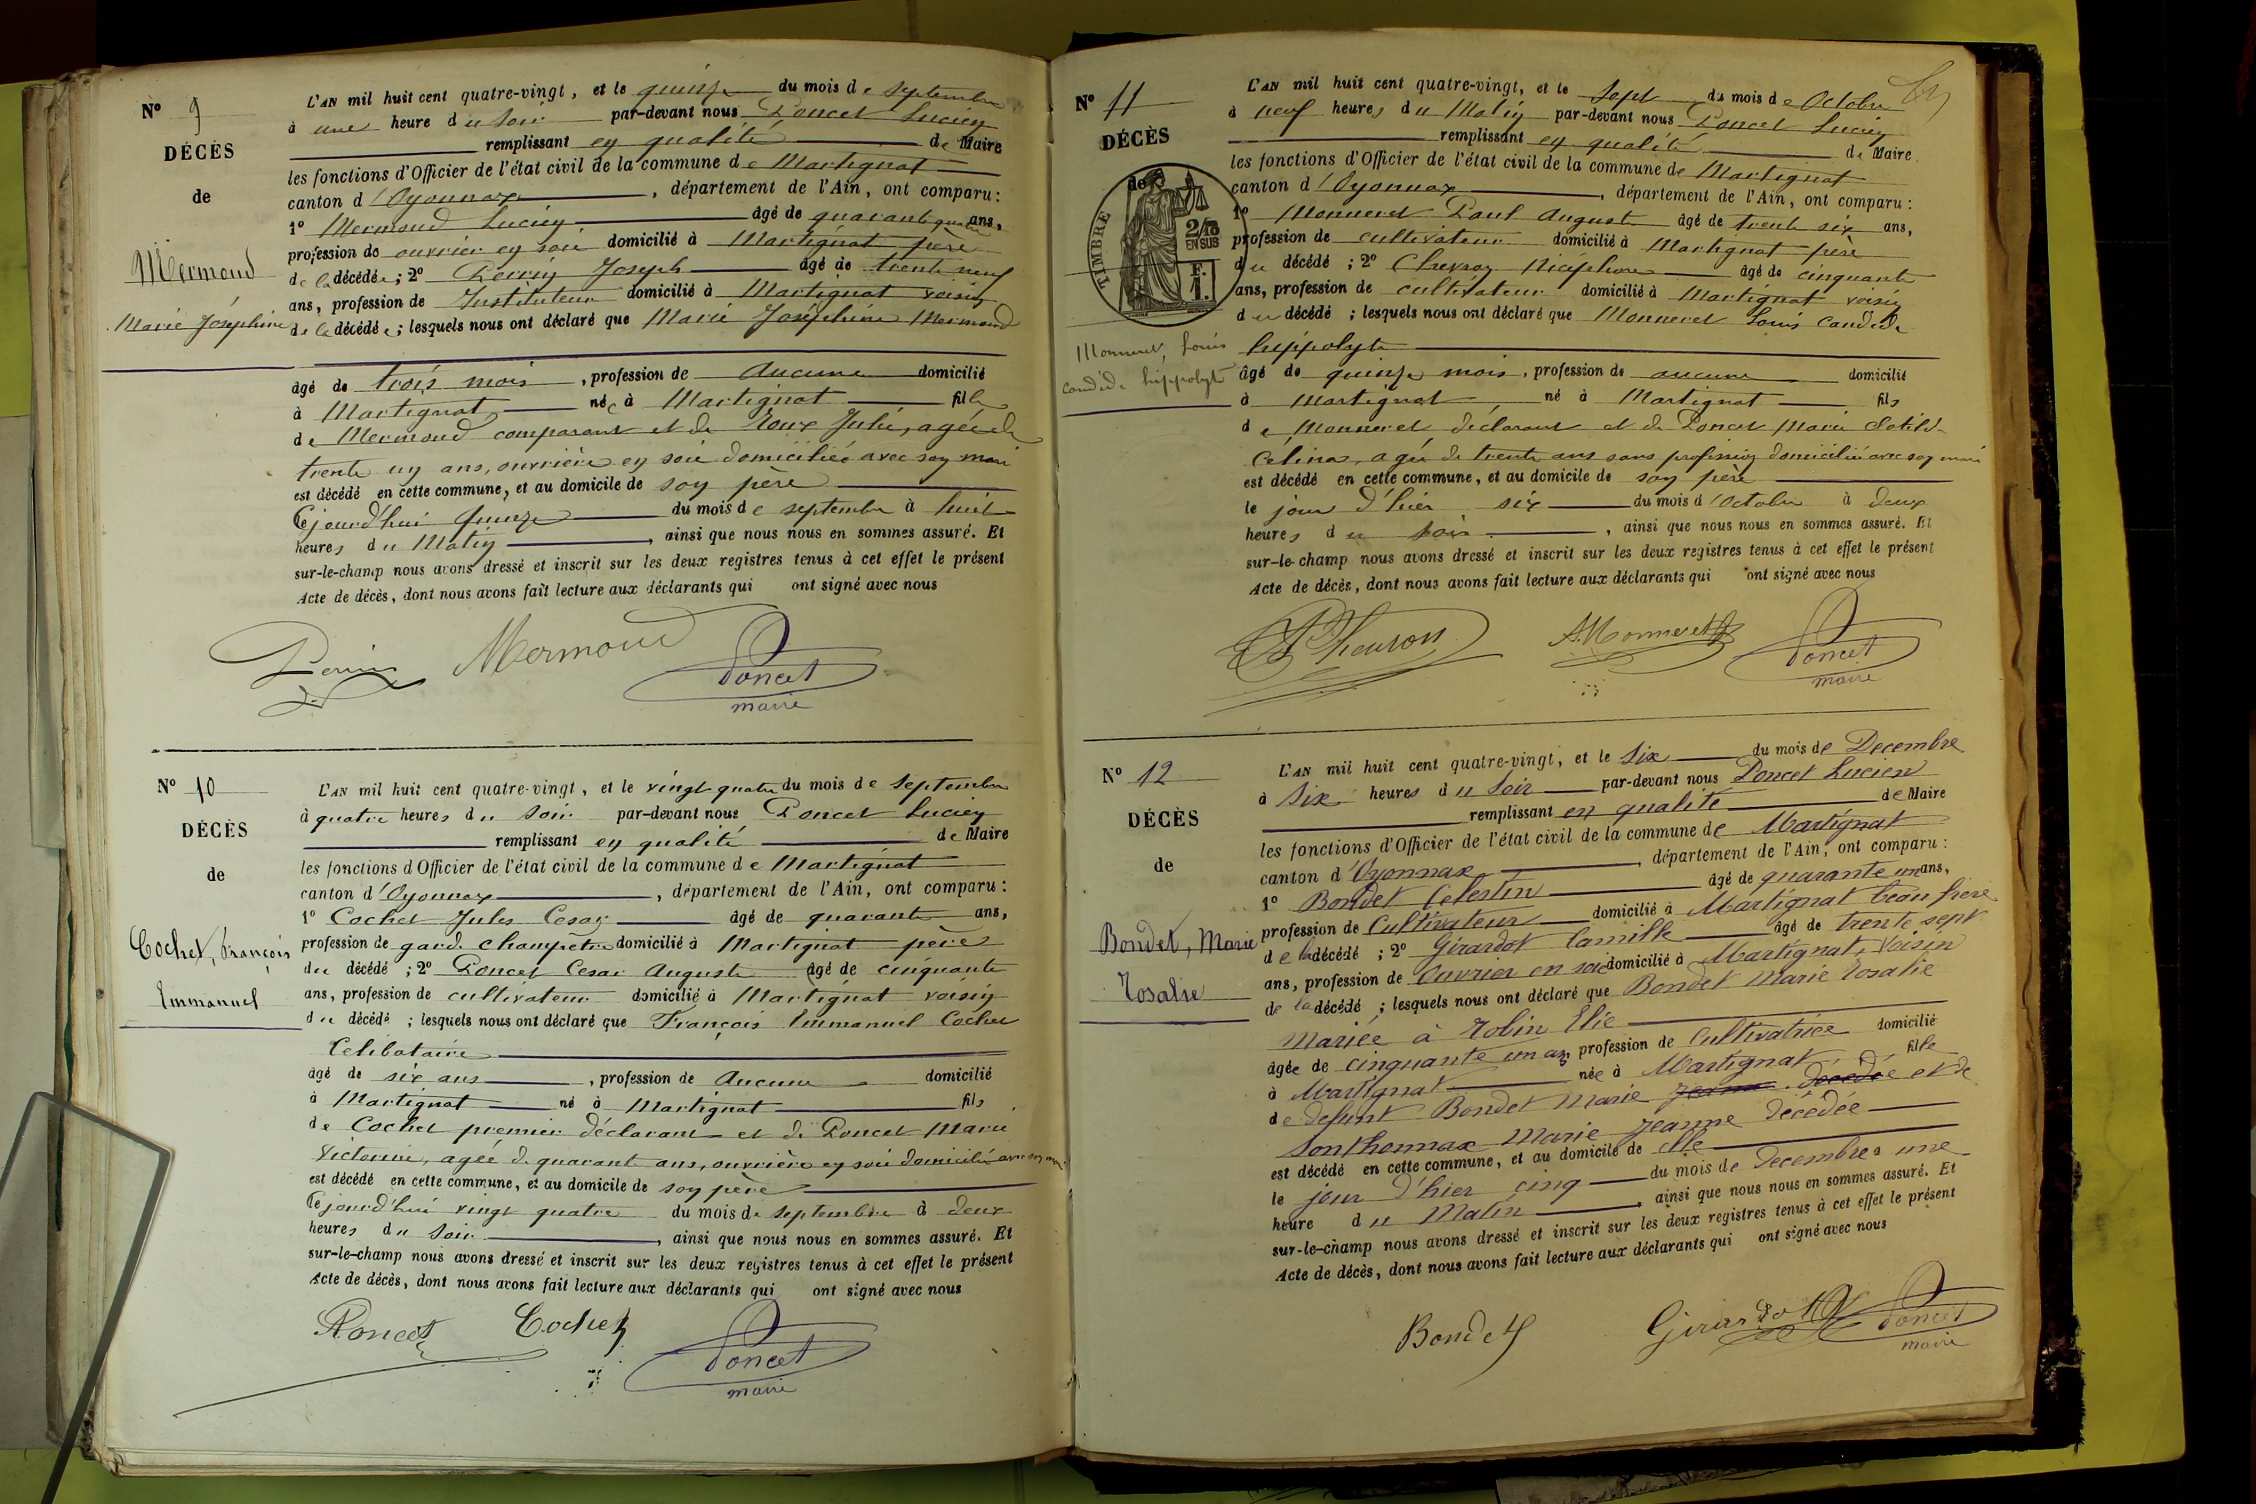 N° 9
DÉCÈS
de
Mermoud
Marie Joséphine
L'AN mil huit cent quatre-vingt, et le quinze du mois de Septembre
à une heure du soir par-devant nous Poncet Lucien
remplissant en qualité de Maire
les fonctions d'Officier de l'état civil de la commune de Martignat
canton d'Oyonnax, département de l'Ain, ont comparu:
1° Mermoud Lucien âgé de quarante quatre ans,
profession de ouvrier en soie domicilié à Martignat père
de la décédée; 2° Perrin Joseph âgé de trente neuf
ans, profession de Instituteur domicilié à Martignat voisin
de la décédée; lesquels nous ont déclaré que Marie Joséphine Mermoud
âgé de trois mois, profession de Aucune domicilié
à Martignat née à Martignat fille
de Mermoud comparant et de Roux Julie, agée de
trente un ans, ouvrière en soie domiciliée avec son mari
est décédé en cette commune, et au domicile de son père
Cejourd'hui Quinze du mois de septembre à huit
heures du Matin, ainsi que nous nous en sommes assuré. Et
sur-le-champ nous avons dressé et inscrit sur les deux registres tenus à cet effet le présent
Acte de décès, dont nous avons fait lecture aux déclarants qui ont signé avec nous
Perrin Mermoud Poncet
maire
N° 10
DÉCÈS
de
Cochet, François
Emmanuel
L'AN mil huit cent quatre-vingt, et le vingt quatre du mois de Septembre
à quatre heures du soir par-devant nous Poncet Lucien
remplissant en qualité de Maire
les fonctions d'Officier de l'état civil de la commune de Martignat
canton d'Oyonnax, département de l'Ain, ont comparu:
1° Cochet Jules Cesar âgé de quarante ans,
profession de garde champêtre domicilié à Martignat père
du décédé; 2° Poncet Cesar Auguste âgé de cinquante
ans, profession de cultivateur domicilié à Martignat voisin
du décédé; lesquels nous ont déclaré que François Emmanuel Cochet
Celibataire
âgé de six ans, profession de Aucune domicilié
à Martignat né à Martignat fils
de Cochet premier déclarant et de Poncet Marie
Victorine, agée de quarante ans, ouvrière en soie domiciliée avec son mari
est décédé en cette commune, et au domicile de son père
Cejourd'hui vingt quatre du mois de septembre à deux
heures du soir, ainsi que nous nous en sommes assuré. Et
sur-le-champ nous avons dressé et inscrit sur les deux registres tenus à cet effet le présent
Acte de décès, dont nous avons fait lecture aux déclarants qui ont signé avec nous
Poncet Cochet Poncet
maire
N° 11
DÉCÈS
de
TIMBRE
2/10
EN SUS
F.
1.
Monneret, Louis
candide hippolyte
L'AN mil huit cent quatre-vingt, et le Sept du mois de Octobre
à neuf heures du Matin par-devant nous Poncet Lucien
remplissant en qualité de Maire
les fonctions d'Officier de l'état civil de la commune de Martignat
canton d'Oyonnax, département de l'Ain, ont comparu:
1° Monneret Paul August âgé de trente six ans,
profession de cultivateur domicilié à Martignat père
du décédé; 2° Chevron Nicéphore âgé de cinquante
ans, profession de cultivateur domicilié à Martignat voisin
du décédé; lesquels nous ont déclaré que Monneret Louis Candide
hippolyte
âgé de quinze mois, profession de aucune domicilié
à Martignat né à Martignat fils
de Monneret déclarant et de Poncet Marie Clotilde
Célina, agée de trente ans sans profession domiciliée avec son mari
est décédé en cette commune, et au domicile de son père
le jour d'hier six du mois d'Octobre à deux
heures du soir, ainsi que nous nous en sommes assuré. Et
sur-le-champ nous avons dressé et inscrit sur les deux registres tenus à cet effet le présent
Acte de décès, dont nous avons fait lecture aux déclarants qui ont signé avec nous
Cheuron A. Monneret Poncet
maire
N° 12
DÉCÈS
de
Bondet, Marie
Rosalie
L'AN mil huit cent quatre-vingt, et le Six du mois de Decembre
à Six heures du Soir par-devant nous Poncet Lucien
remplissant en qualité de Maire
les fonctions d'Officier de l'état civil de la commune de Martignat
canton d'Oyonnax, département de l'Ain, ont comparu:
1° Bondet Celestin âgé de quarante un ans,
profession de Cultivateur domicilié à Martignat beau frère
de la décédé; 2° Girardot Camille âgé de trente sept
ans, profession de Ouvrier en soie domicilié à Martignat, Voisin
de la décédé; lesquels nous ont déclaré que Bondet Marie Rosalie
mariée à Robin Elie
âgée de cinquante un ans, profession de Cultivatrice domicilié
à Martignat née à Martignat fille
de defunt Bondet Marie Jeanne décédée et de
Sonthonnax Marie Jeanne décédée
est décédé en cette commune, et au domicile de elle
le jour d'hier cinq du mois de Decembre à une
heure du Matin, ainsi que nous nous en sommes assuré. Et
sur-le-champ nous avons dressé et inscrit sur les deux registres tenus à cet effet le présent
Acte de décès, dont nous avons fait lecture aux déclarants qui ont signé avec nous
Bondet Girardot Poncet
maire